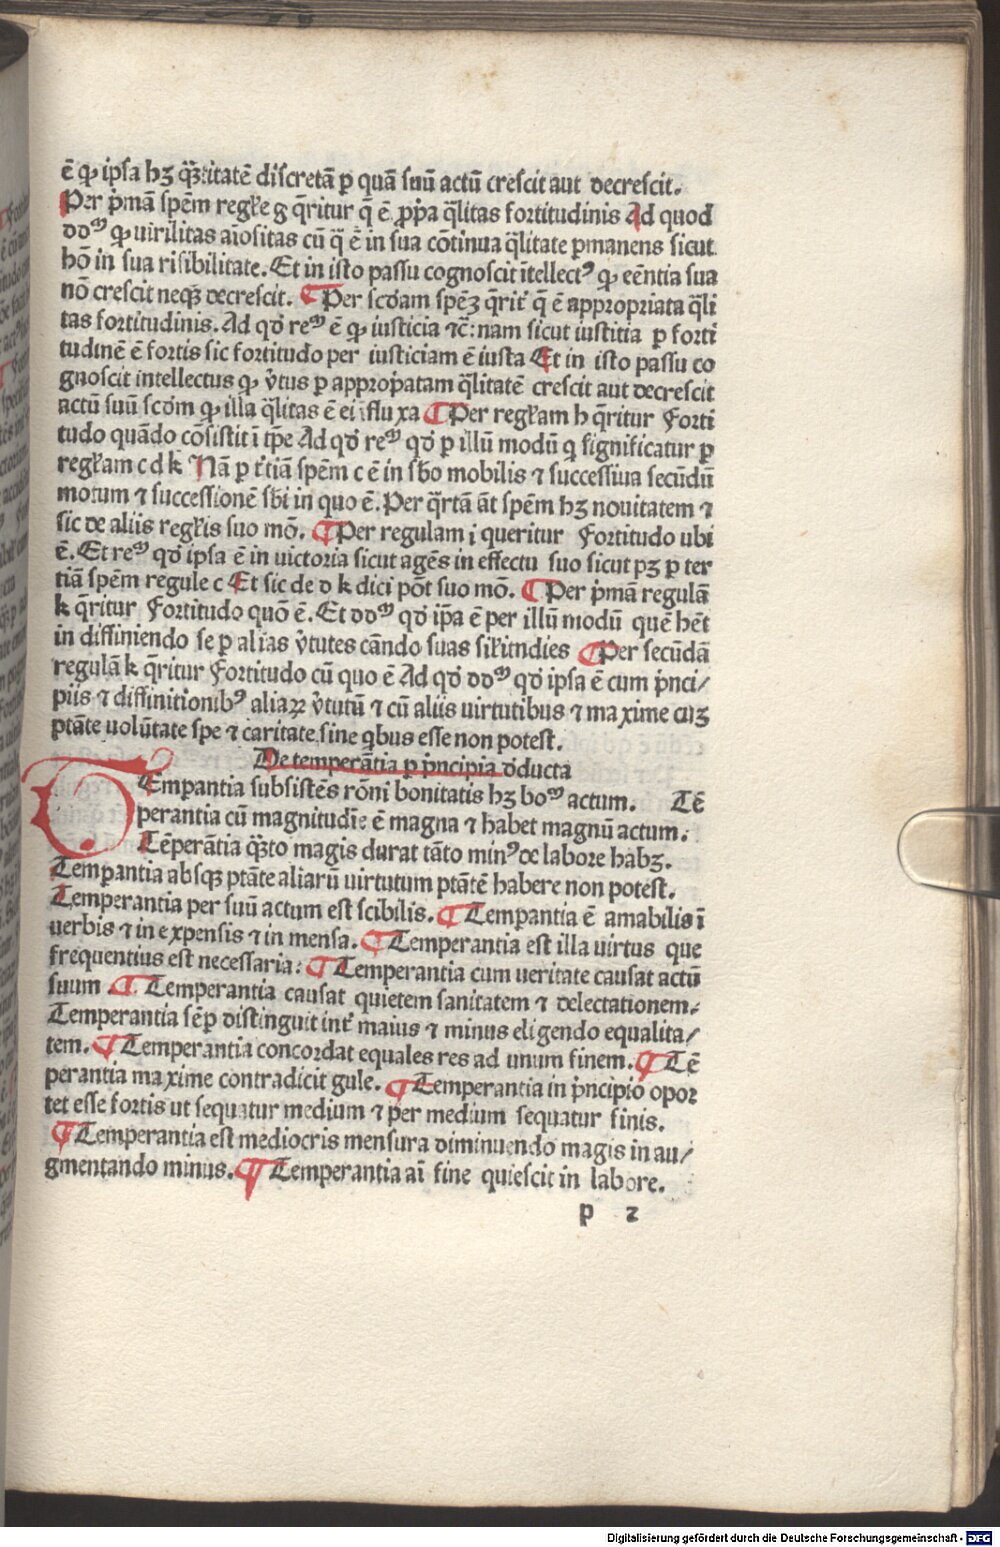 ē ꝙ ipsa hꝫ q̄titatē discretā p quā suū actū crescit aut decrescit.
Per p̄mā spēm regl̄e g q̄ritur q̄ ē ꝓpa q̄litas fortitudinis Ad quod
dd᷒ ꝙ uirilitas aīositas cū q̄ ē in sua cōtinua q̄litate pmanens sicut
hō in sua risibilitate. Et in isto passu cognoscit ītellect᷒ ꝙ eēntia sua
nō crescit neqꝫ decrescit. ¶ Per scd̄am spēꝫ q̄rit᷑ q̄ ē appropriata q̄li
tas fortitudinis. Ad qd̄ re᷒ ē ꝙ iusticia ⁊c̄: nam sicut iustitia p forti
tudinē ē fortis sic fortitudo per iusticiam ē iusta Et in isto passu co
gnoscit intellectus ꝙ v̄tus p approp̄atam q̄litatē crescit aut decrescit
actū suū scd̄m ꝙ illa q̄litas ē ei īfluxa ¶ Per regl̄am h q̄ritur Forti
tudo quādo cōsistit ī tp̄e Ad qd̄ re᷒ qd̄ p illū modū q significatur p
regl̄am c d k Nā p t̄tiā spēm c ē in sb̄o mobilis ⁊ successiua secūdū
motum ⁊ successionē sb̄i in quo ē. Per q̄rtā āt spēm hꝫ nouitatem ⁊
sic de aliis regl̄is suo mō. ¶ Per regulam i queritur Fortitudo ubi
ē. Et re᷒ qd̄ ipsa ē in uictoria sicut agēs in effectu suo sicut pꝫ p ter
tiā spēm regule c Et sic de d k dici pōt suo mō. ¶ Per p̄mā regulā
k q̄ritur Fortitudo quō ē. Et dd᷒ qd̄ ip̄a ē per illū modū quē hēt
in diffiniendo se p alias v̄tutes cāndo suas sil̄itudies ¶ Per secūdā
regulā k q̄ritur Fortitudo cū quo ē Ad qd̄ dd᷒ qd̄ ipsa ē cum p̄nci/
piis ⁊ diffinitionib᷒ aliaꝝ v̄tutū ⁊ cū aliis uirtutibus ⁊ maxime cuꝫ
ptāte uolūtate spe ⁊ caritate sine qbus esse non potest.
De temperātia p p̄ncipia dd̄ucta
TEmpantia subsistēs rōni bonitatis hꝫ bo᷒ actum. Tē
perantia cū magnitudīe ē magna ⁊ habet magnū actum.
Tēperātia q̄sto magis durat tāto min᷒ de labore habꝫ.
Tempantia absqꝫ ptāte aliarū uirtutum ptātē habere non potest.
Temperantia per suū actum est scibilis. ¶ Tempantia ē amabilis ī
uerbis ⁊ in expensis ⁊ in mensa. ¶ Temperantia est illa uirtus que
frequentius est necessaria: ¶ Temperantia cum ueritate causat actū
suum ¶ Temperantia causat quietem sanitatem ⁊ delectationem.
Temperantia sēp distinguit int᷑ maius ⁊ minus eligendo equalita/
tem. ¶ Temperantia concordat equales res ad unum finem. ¶ Tē
perantia maxime contradicit gule. ¶ Temperantia in p̄ncipio opor
tet esse fortis ut sequatur medium ⁊ per medium sequatur finis.
¶ Temperantia est mediocris mensura diminuendo magis in au/
gmentando minus. ¶ Temperantia aī fine quiescit in labore.
p 2
Digitalisierung gefördert durch die Deutsche Forschungsgemeinschaft - DFG